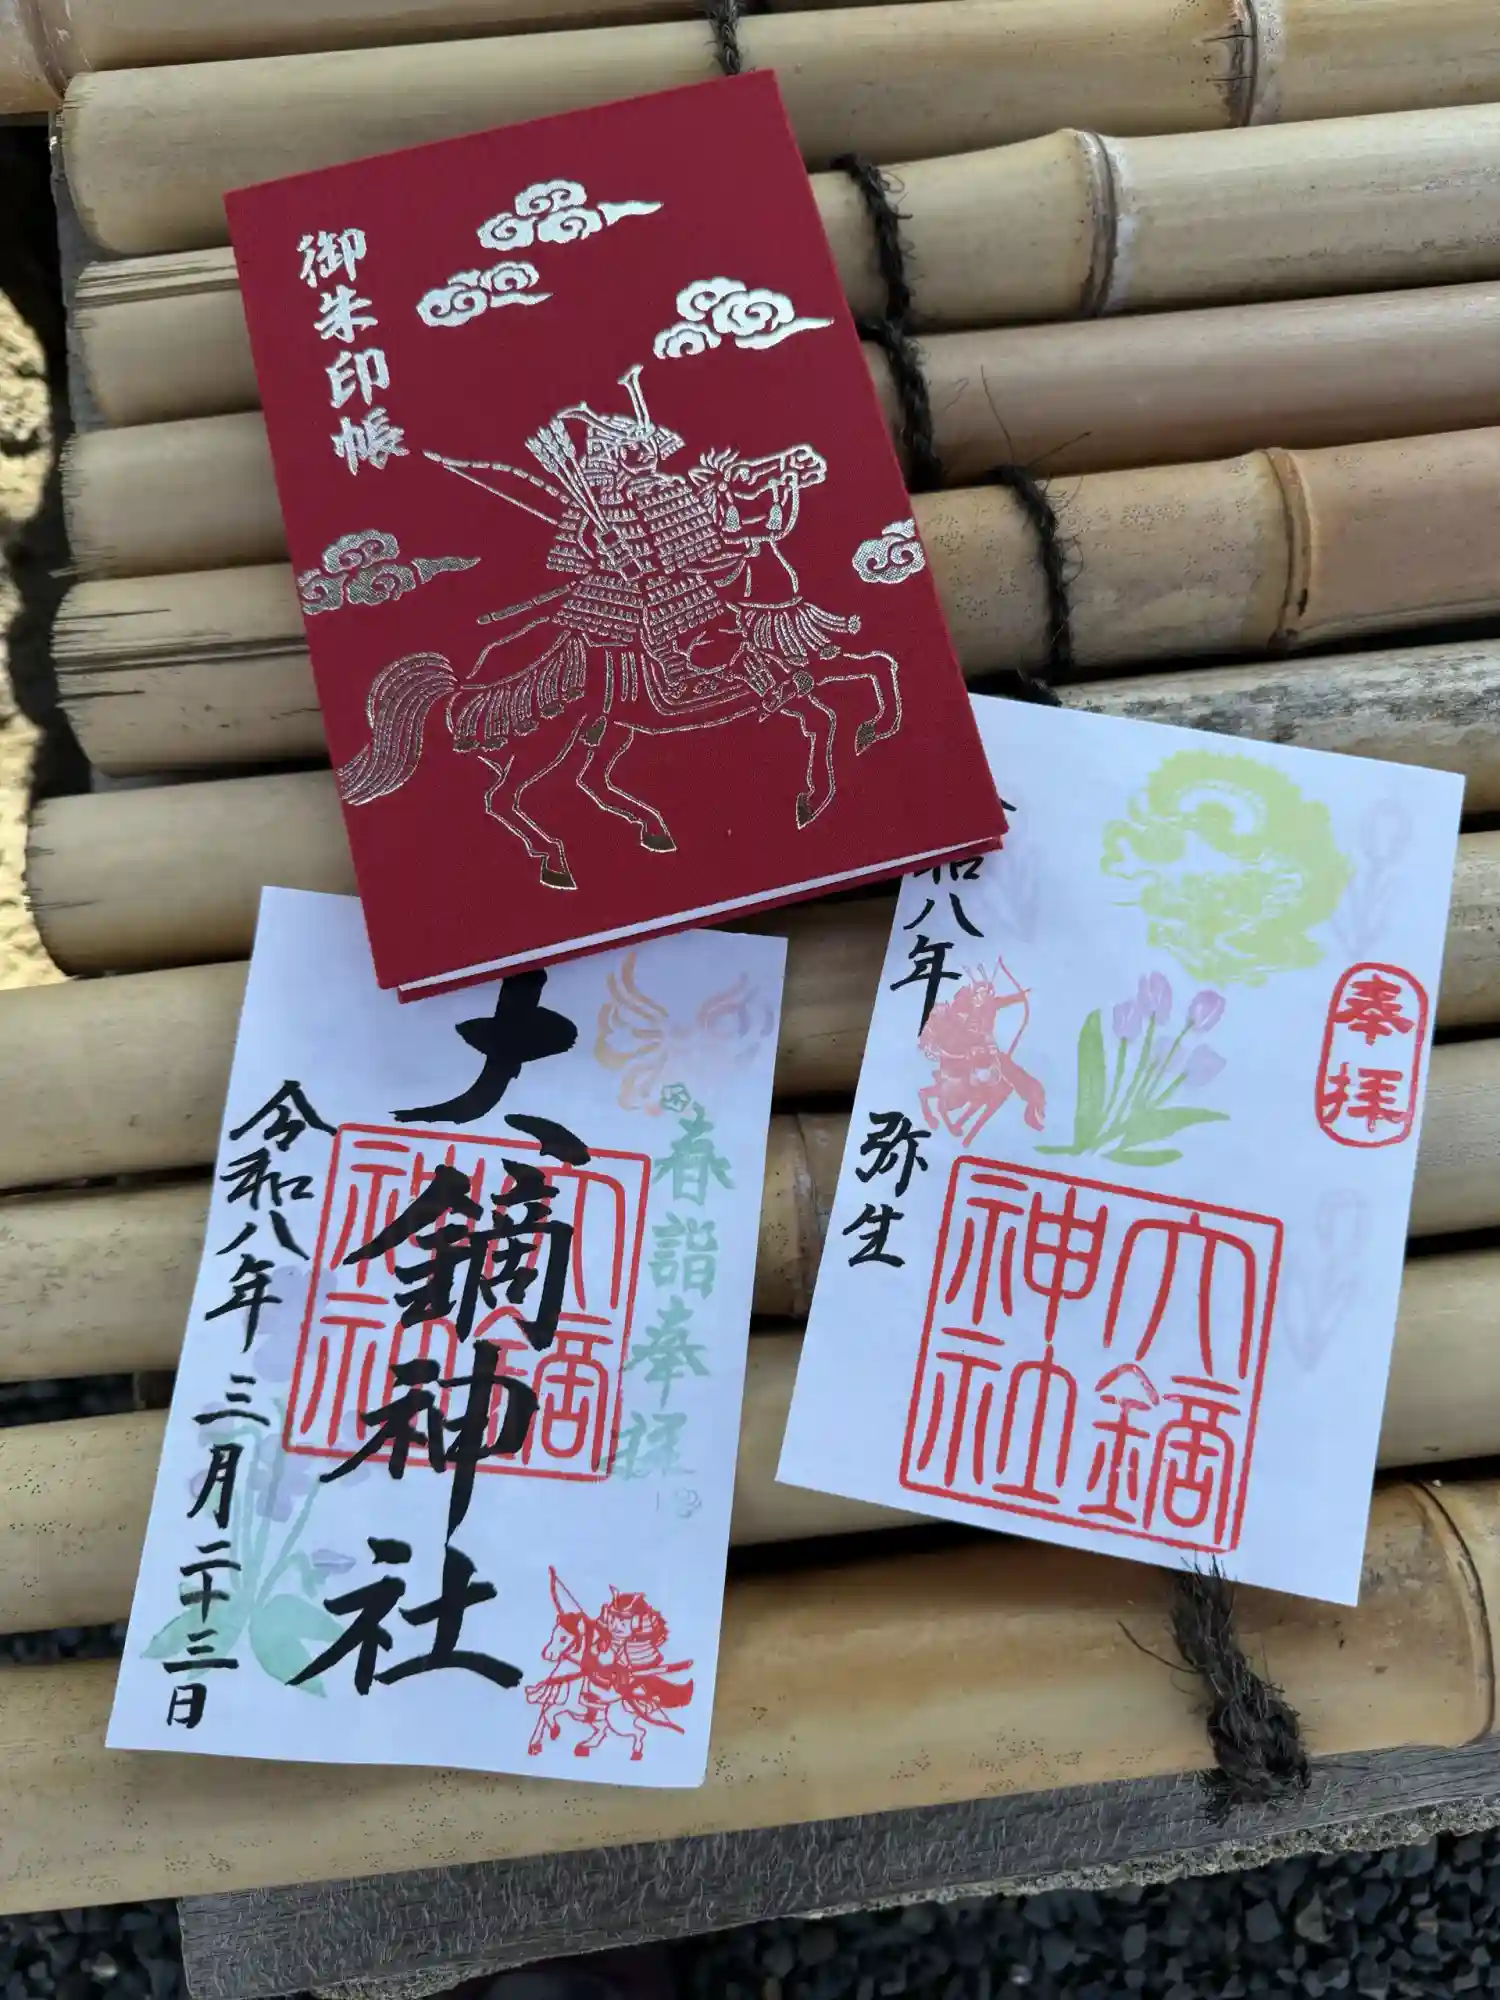 御朱印帳
春詣奉拝
大鏑神社
大鏑神社
令和八年
三月二十三日
奉拝
大鏑神社
和八年
弥生